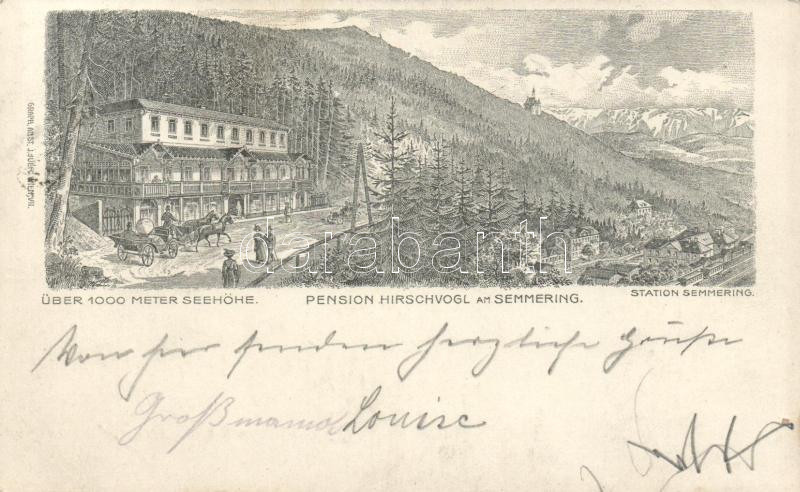 ÜBER 1000 METER SEEHÖHE.
PENSION HIRSCHVOGL AM SEMMERING.
STATION SEMMERING.
darabanth
Von hier senden herzliche Grüße
Großmama Louise